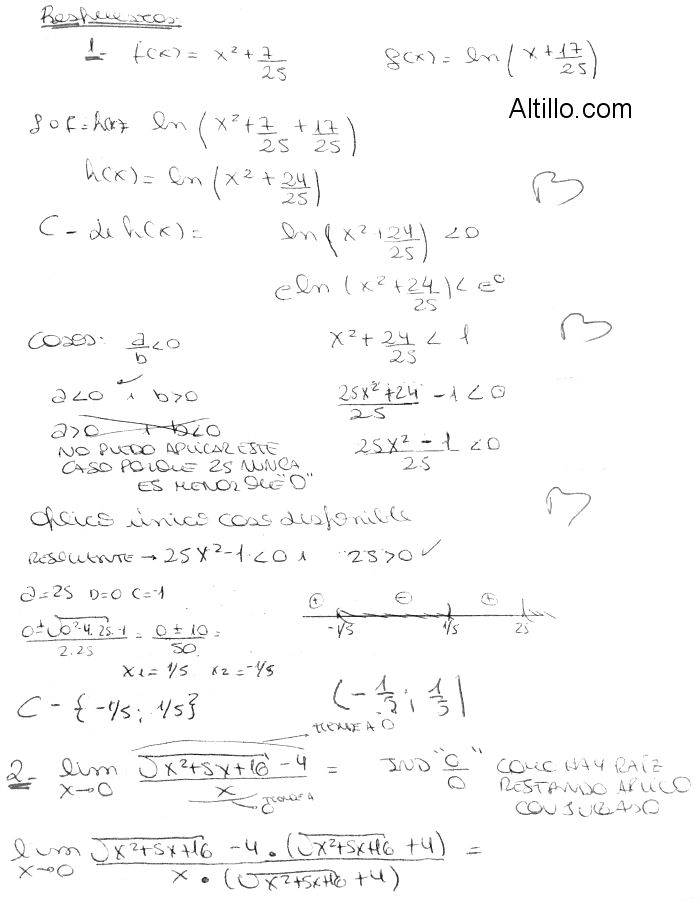 Respuestas:
1- f(x) = x² + 7/25    g(x) = ln(x + 17/25)
Altillo.com
g o f = h(x) ln(x² + 7/25 + 17/25)
h(x) = ln(x² + 24/25)
B
C - de h(x) = ln(x² + 24/25) < 0
e ln(x² + 24/25) < e⁰
B
CASOS: a/b < 0    x² + 24/25 < 1
a<0 ∧ b>0 ✓    (25x² + 24)/25 - 1 < 0
a>0 ∧ b<0    (25x² - 1)/25 < 0
NO PUEDO APLICAR ESTE
CASO PORQUE 25 NUNCA
ES MENOR QUE "0"
B
Aplico único caso disponible
RESOLVENTE → 25x² - 1 < 0 ∧ 25 > 0 ✓
a=25 b=0 c=-1
(0 ± √(0² - 4.25.-1))/(2.25) = (0 ± 10)/50 =
+ - +
-1/5 1/5 25
x1 = 1/5 x2 = -1/5
C - {-1/5; 1/5}    (-1/5 ; 1/5)
TIENDE A 0
2- lim x→0 (√(x²+5x+16) - 4)/x = IND "0/0" COMO HAY RAÍZ
RESTANDO APLICO
CONJUGADO
TIENDE A
lim x→0 (√(x²+5x+16) - 4 . (√(x²+5x+16) + 4))/(x . (√(x²+5x+16) + 4)) =